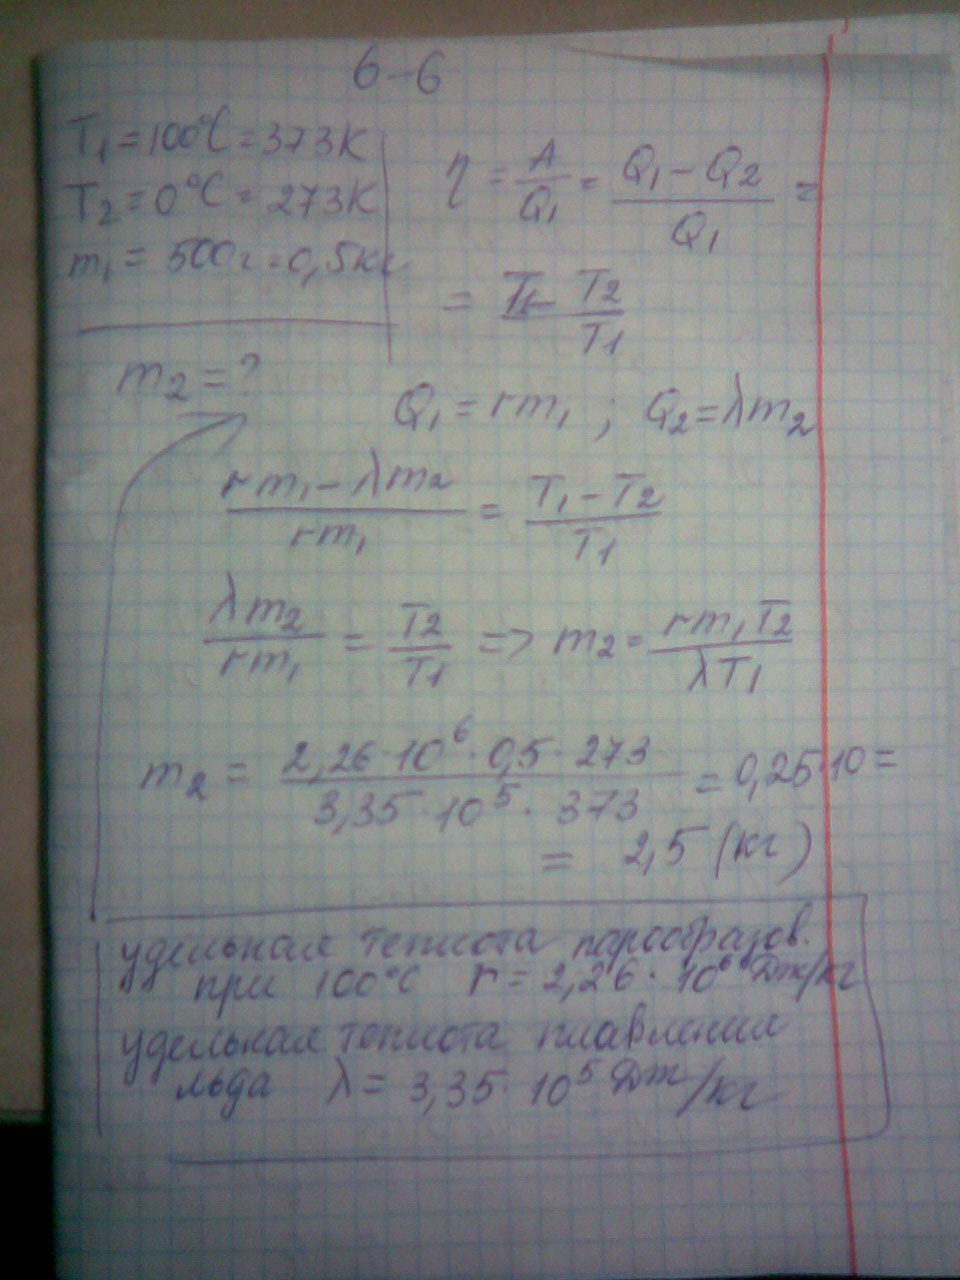 6-6
T₁ = 100°C = 373К
T₂ = 0°C = 273К
m₁ = 500г = 0,5кг
m₂ = ?
η = A/Q₁ = (Q₁ - Q₂)/Q₁ =
= 1 - T₂/T₁
Q₁ = rm₁ ; Q₂ = λm₂
(rm₁ - λm₂)/(rm₁) = (T₁ - T₂)/T₁
λm₂/rm₁ = T₂/T₁ => m₂ = rm₁T₂/λT₁
m₂ = (2,26·10⁶·0,5·273)/(3,35·10⁵·373) = 0,25·10 =
= 2,5 (кг)
удельная теплота парообразов.
при 100°C r = 2,26·10⁶ Дж/кг
удельная теплота плавления
льда λ = 3,35·10⁵ Дж/кг